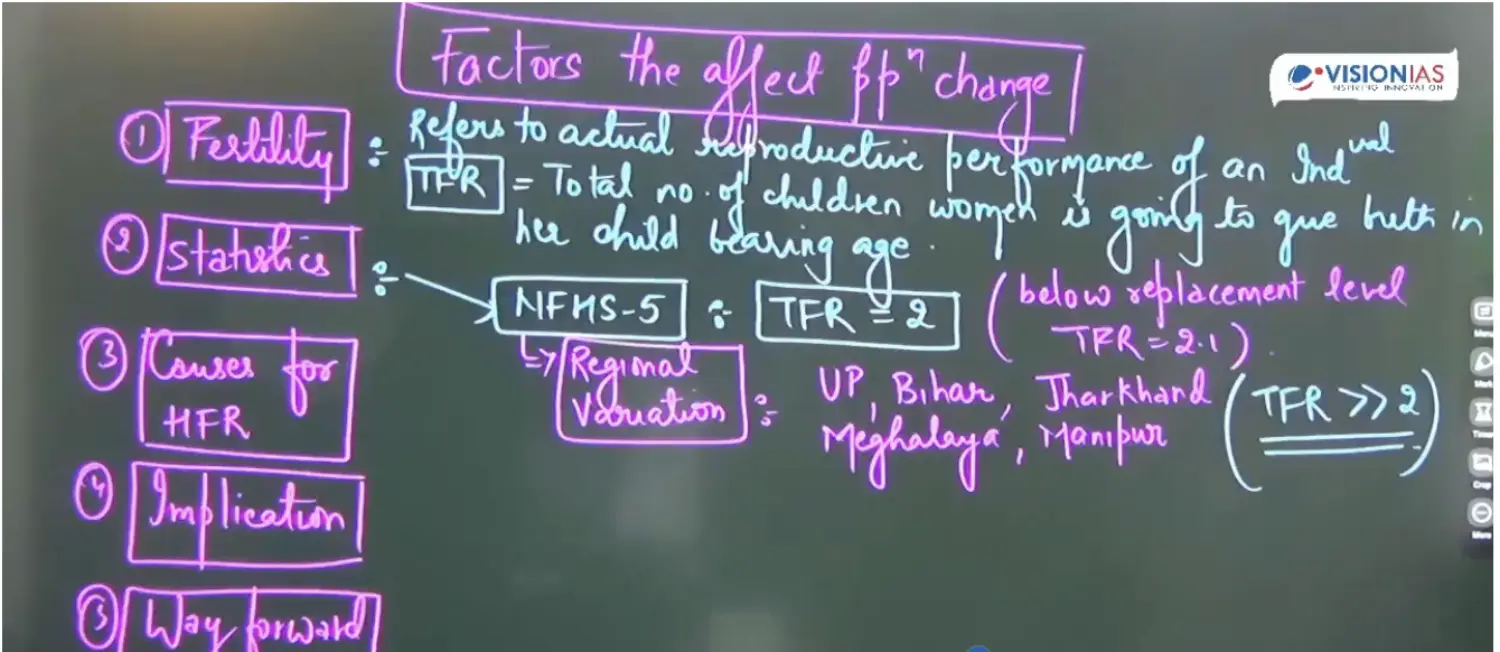 Factors the affect ppⁿ change
VISIONIAS
INSPIRING INNOVATION
① Fertility :- Refers to actual reproductive performance of an Indᵛᵃˡ
TFR = Total no. of children women is going to give birth in
her child bearing age.
② Statistics :- → NFHS-5 :- TFR = 2 (below replacement level
TFR = 2.1).
↳ Regional
Variation :- UP, Bihar, Jharkhand
Meghalaya, Manipur (TFR >> 2)
③ Causes for
HFR
④ Implication
⑤ Way forward
More